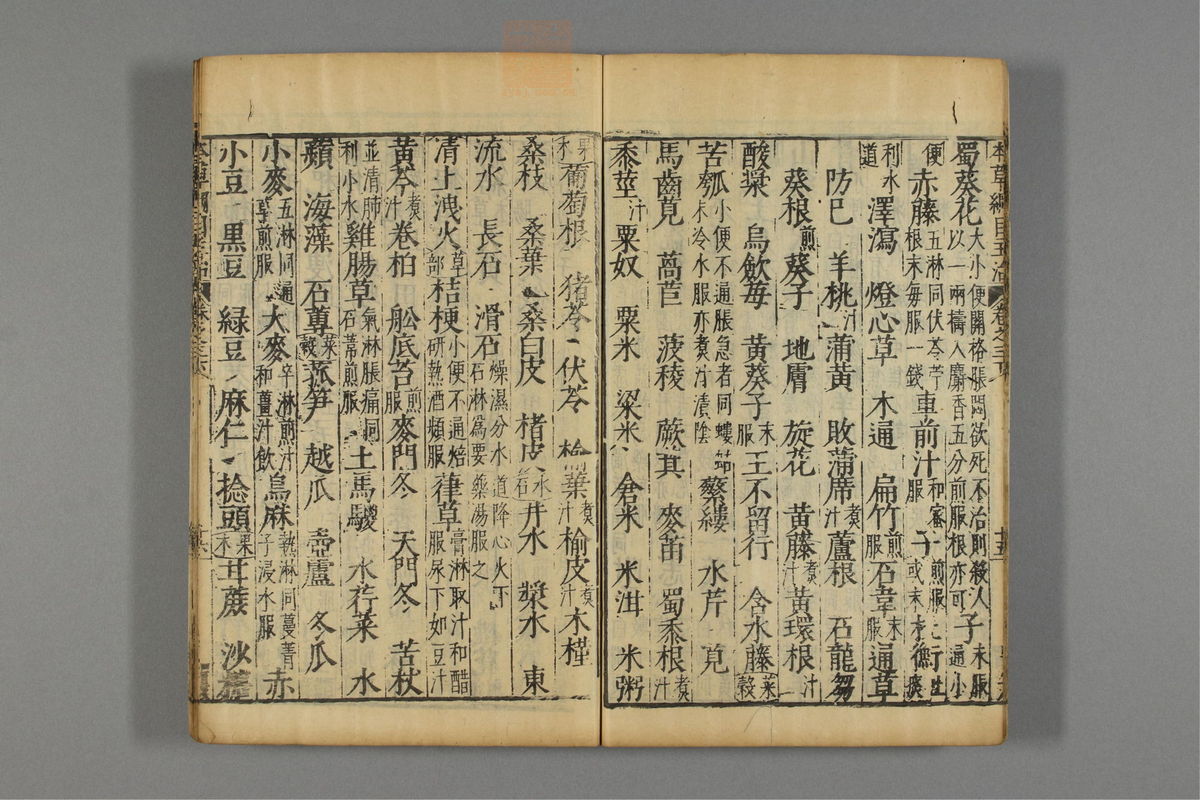 蜀葵花大小便關格脹悶欲死不治則殺人以一兩擣入麝香五分煎服根亦可子末服通小
便赤藤五淋同伏苓苧根末每服一錢車前汁和蜜服子煎服或末
利水道澤瀉 燈心草 木通 扁竹煎服石韋末服通草
防巳 羊桃汁蒲黃 敗蒲席煮汁蘆根 石龍芻
葵根煎葵子 地膚 旋花 黃藤煮汁黃環根汁
酸漿 烏蘞莓 黃葵子末服王不留行 含水藤菜穀
苦瓠小便不通脹急者同螻蛄末冷水服亦煮汁漬陰蘩縷 水芹 莧
馬齒莧 萵苣 菠薐 蕨萁 麥苗 蜀黍根煮汁
黍莖汁粟奴 粟米 粱米 倉米 米泔 米粥
果木葡萄根 猪苓 伏苓 榆葉煮汁榆皮煮汁木槿
桑枝 桑葉 桑白皮 楮皮水石井水 漿水 東
流水 長石 滑石燥濕分水道降心火下石淋爲要藥湯服之
清上洩火草部桔梗小便不通焙研熱酒頻服葎草膏淋取汁和醋服尿下如豆汁
黃芩煮汁卷柏 船底苔煎服麥門冬 天門冬 苦杖
並清肺利小水雞腸草氣淋脹痛同石葦煎服土馬騣 水荇菜 水
蘋 海藻 石蓴菜穀菰筍 越瓜 壺盧 冬瓜
小麥五淋同通草煎服大麥卒淋煎汁和薑汁飲烏麻熱淋同蔓菁子浸水服赤
小豆 黒豆 緑豆 麻仁 捻頭果木甘蔗 沙